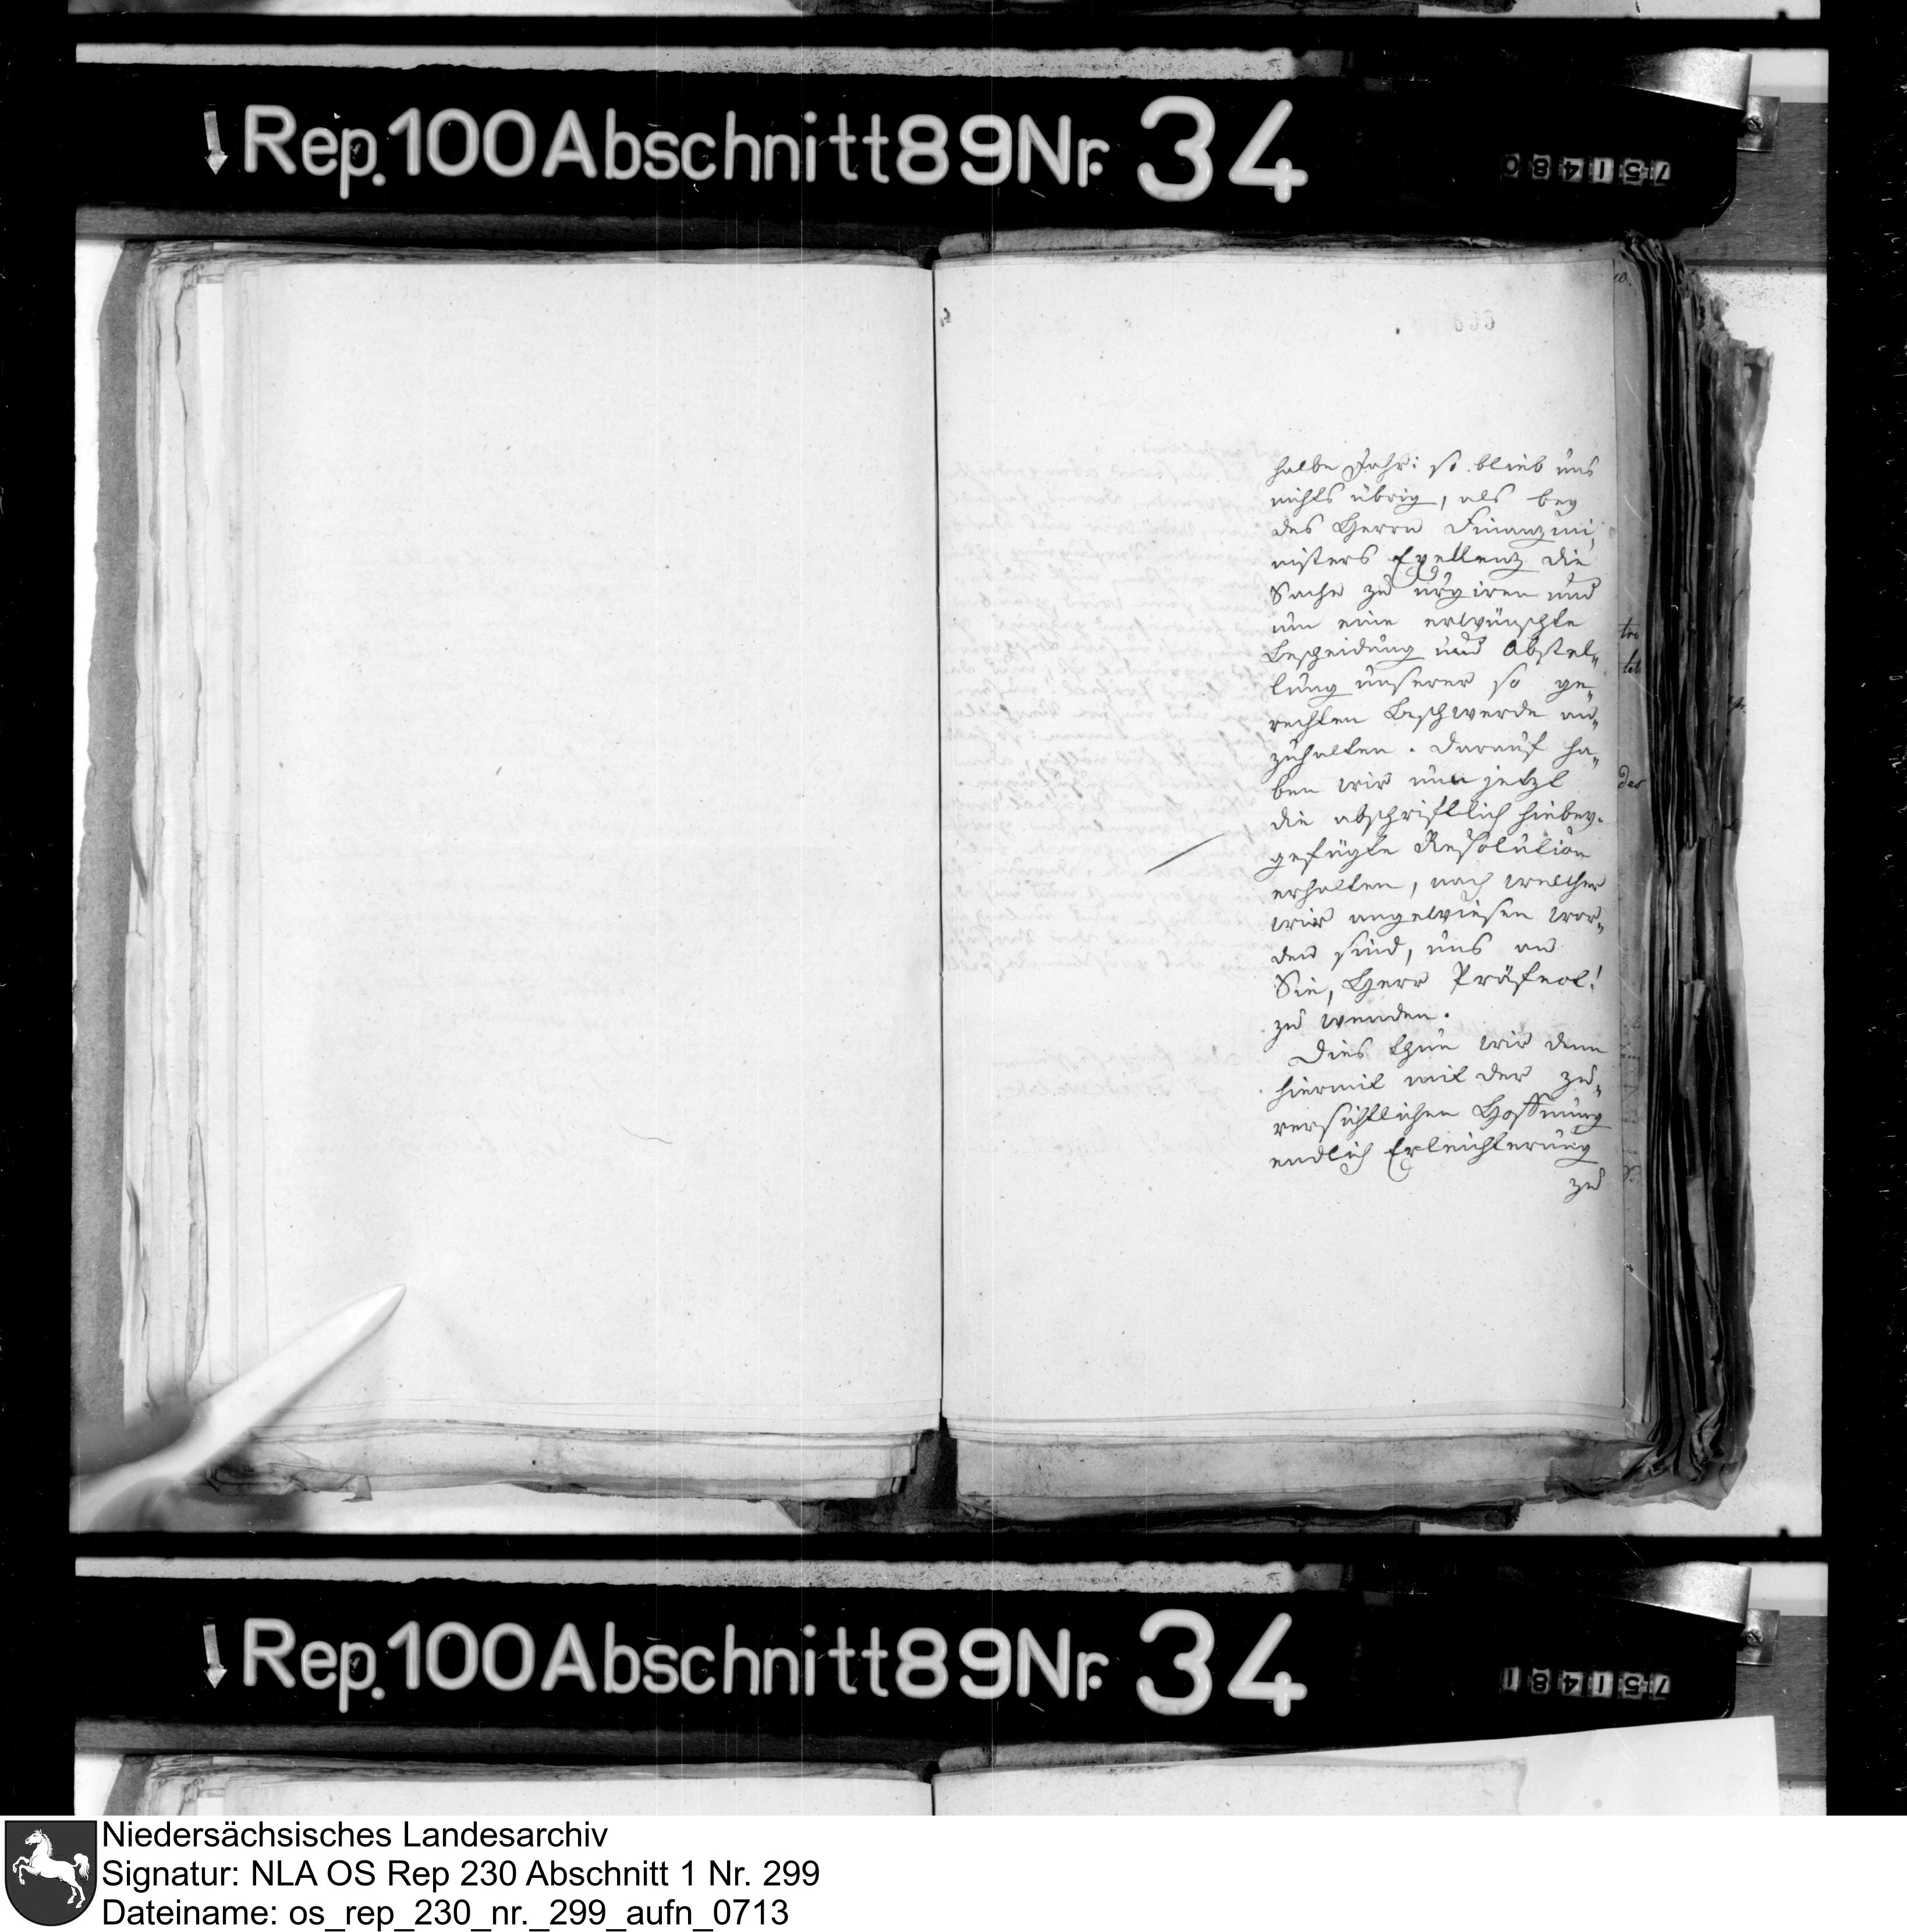 Rep.100Abschnitt89Nr. 34
751480
halbe Jahr: so blieb uns
nichts übrig, als bey
des Herrn Finanzmi„
nisters Exellenz die
Sache zu urgiren und
um eine erwünschte
Bescheidung und Abstel„
lung unserer so ge„
rechten Beschwerde an„
zuhalten. Darauf ha„
ben wir nun jetzt
die abschriftlich hiebey„
gefügte Resolution
erhalten, nach welcher
wir angewiesen wor„
den sind, uns an
Sie, Herr Präfect!
zu wenden.
Dies thun wir denn
hiermit mit der zu„
versichtlichen Hoffnung
endlich Erleichterung
zu
Rep.100Abschnitt89Nr. 34
751481
Niedersächsisches Landesarchiv
Signatur: NLA OS Rep 230 Abschnitt 1 Nr. 299
Dateiname: os_rep_230_nr._299_aufn_0713